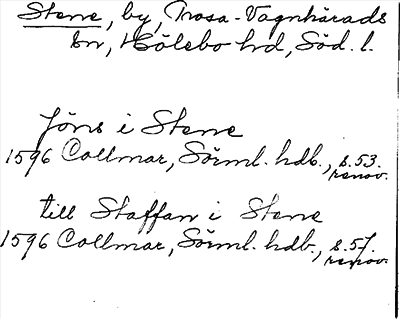 Stene, by, Trosa-Vagnhärads
sn, Hölebo hd, Söd. l.
Jöns i Stene
1596 Collmar, Sörml. hdb., s. 53.
renov.
till Staffan i Stene
1596 Collmar, Sörml. hdb., s. 57.
renov.